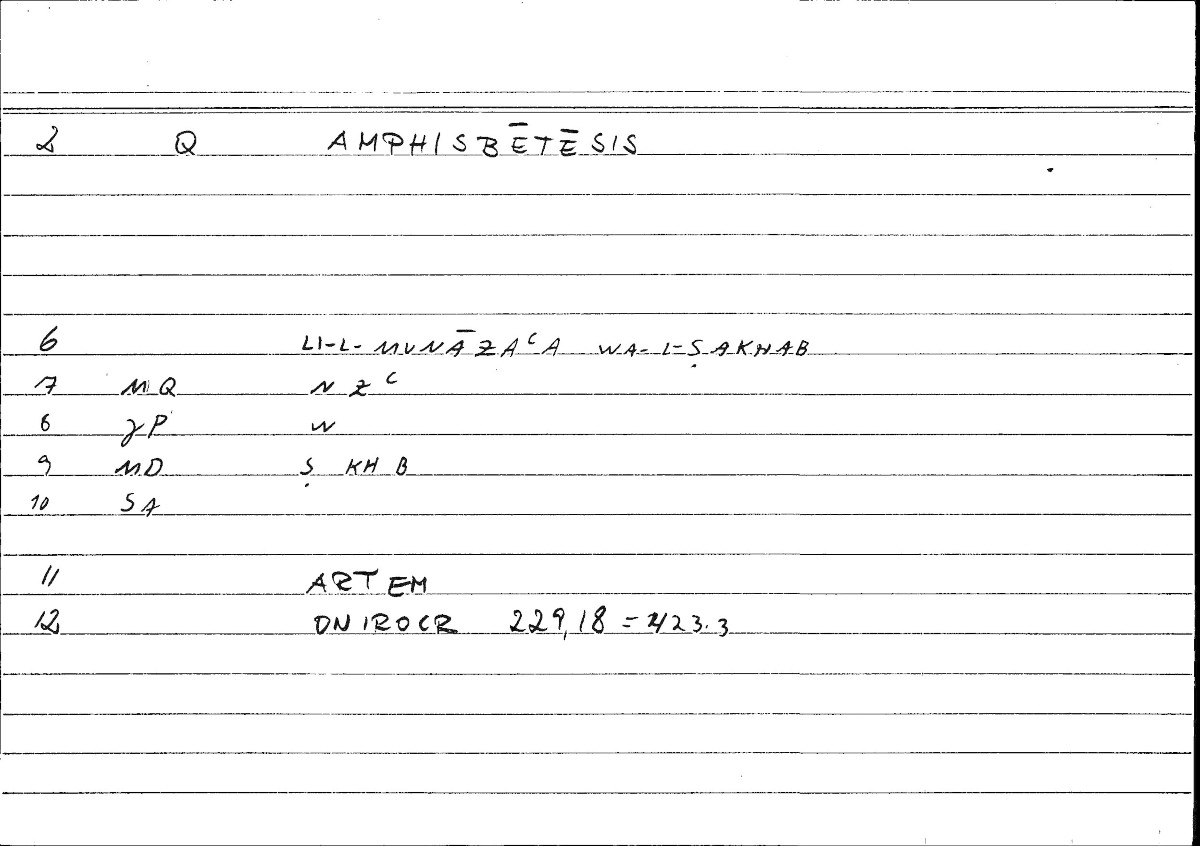 2 Q AMPHISBĒTĒSIS
6 LI-L-MUNĀZAʿA WA-L-ṢAKHAB
7 MQ N Z ʿ
8 γP W
9 MD Ṣ KH B
10 SA
11 ARTEM
12 ONIROCR 229,18 = 423.3